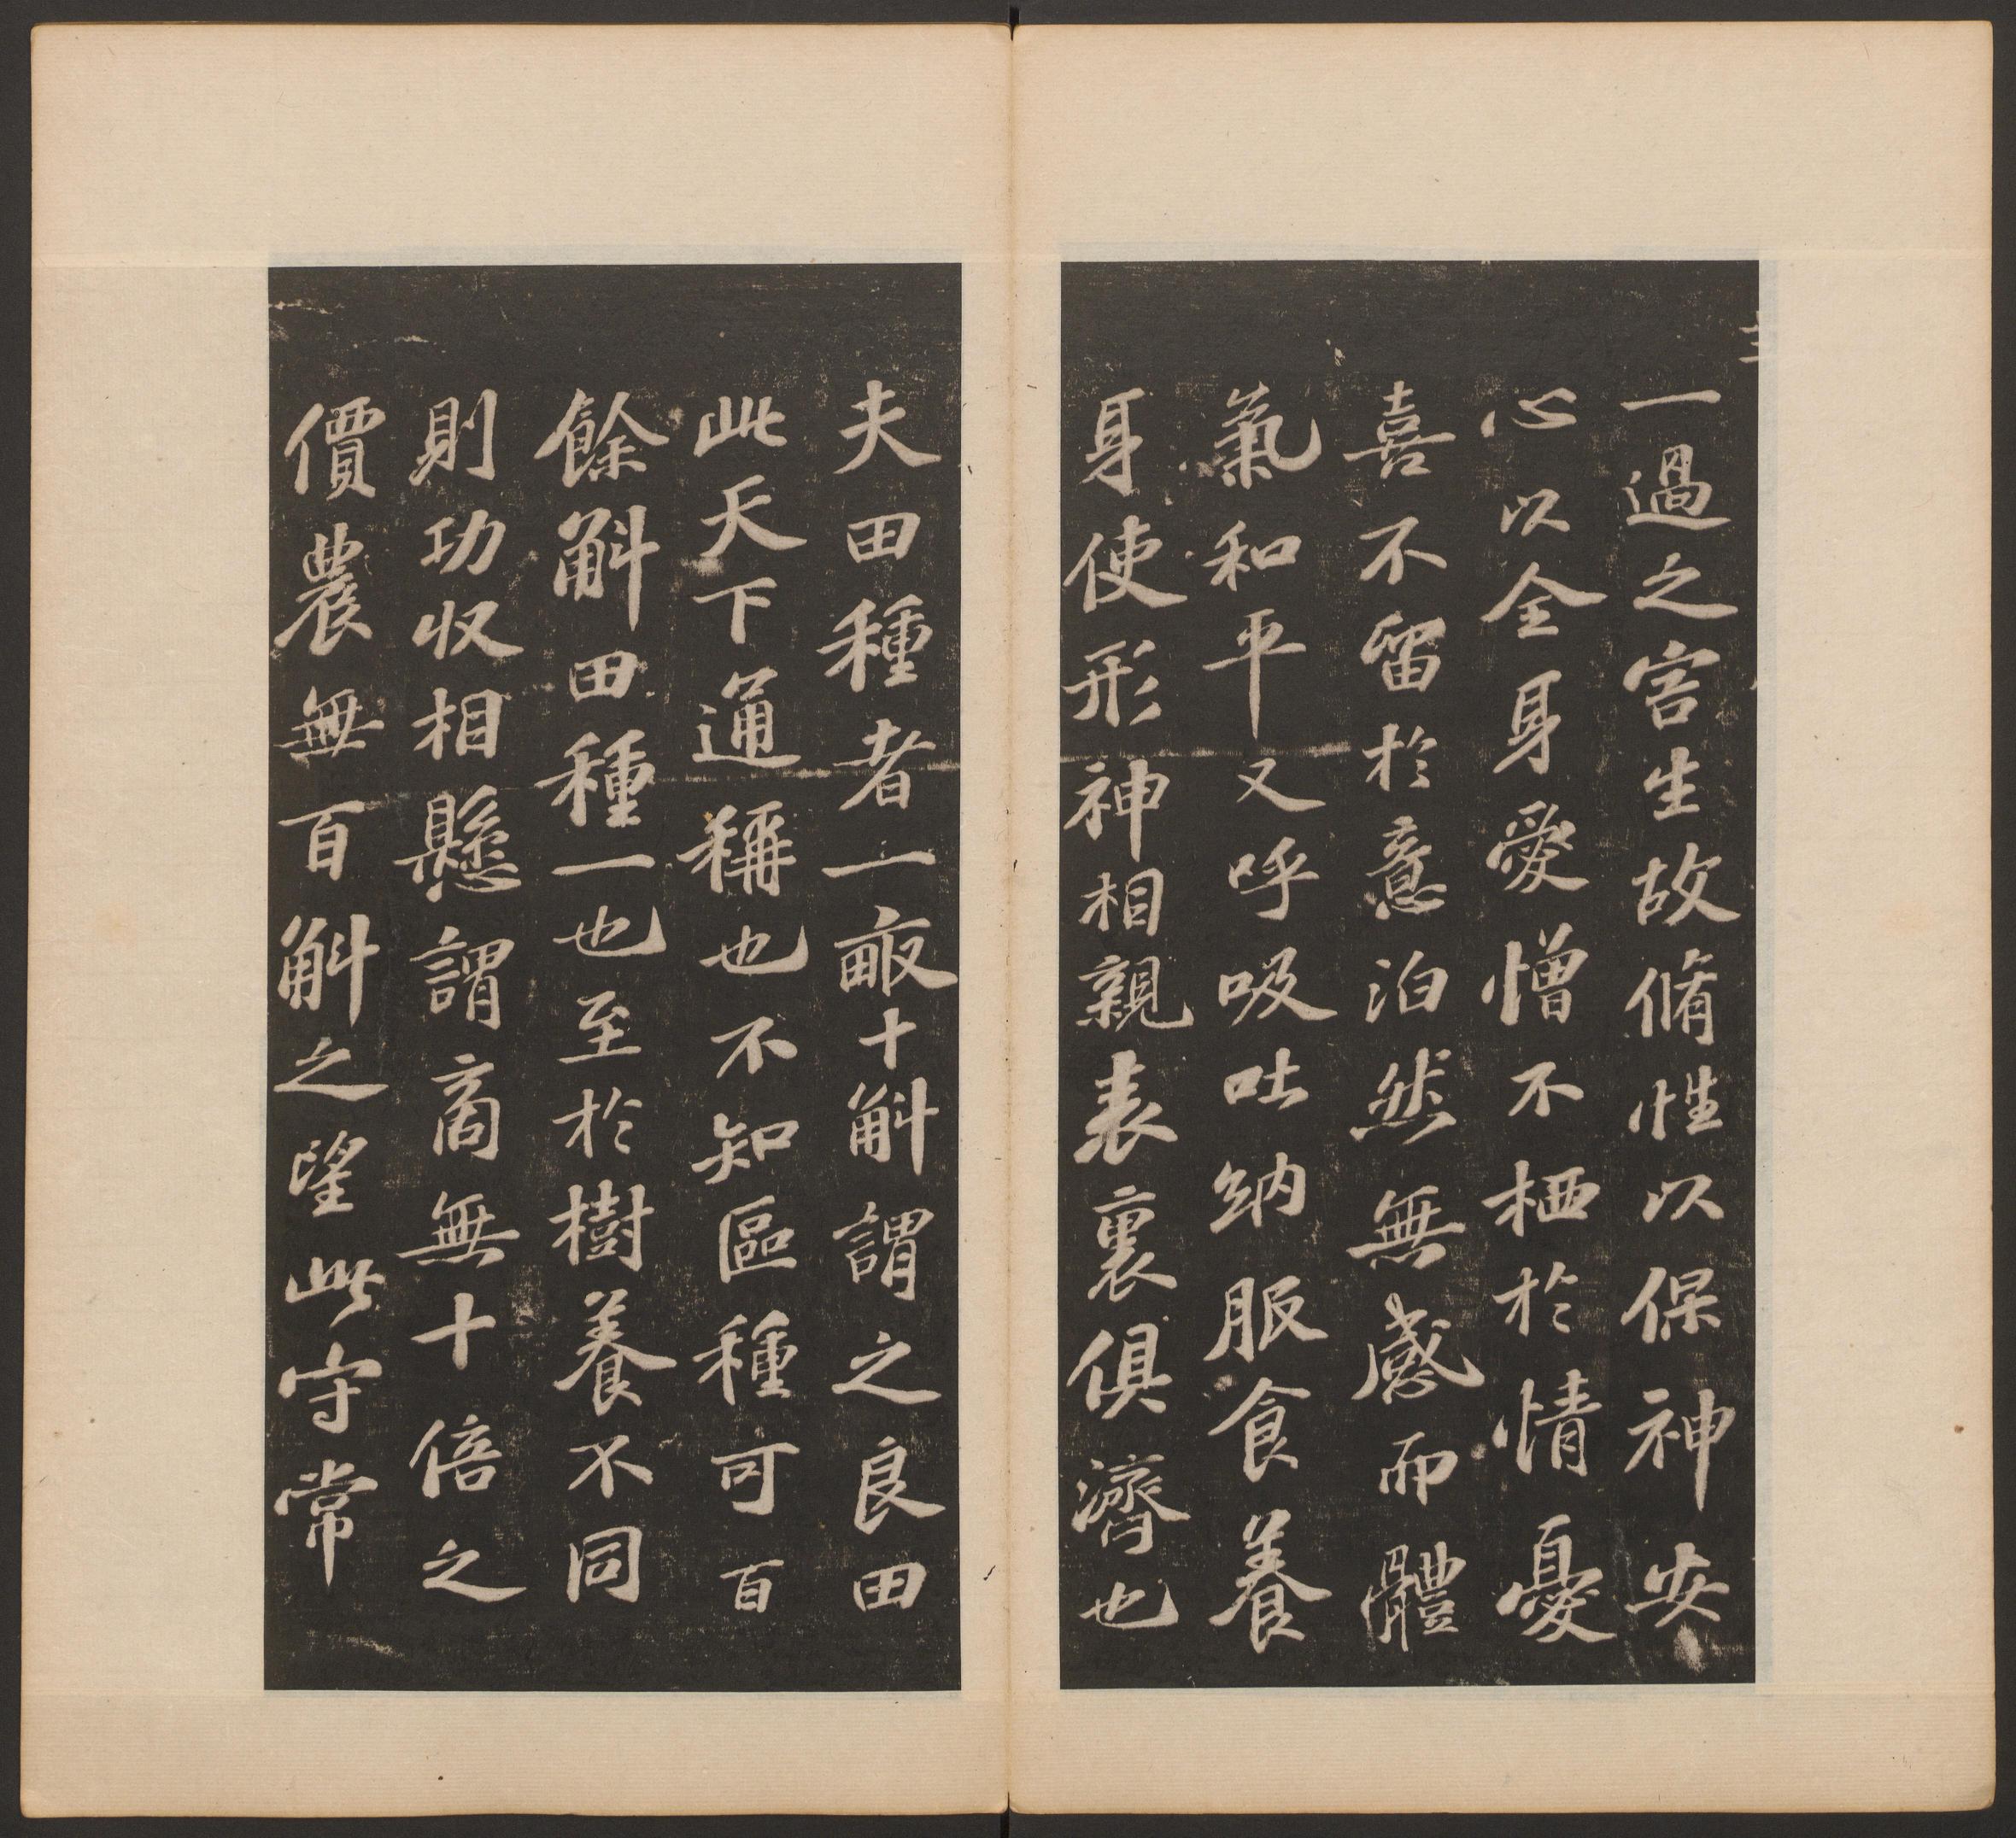 一過之害生故脩性以保神安
心以全身愛憎不栖於情憂
喜不留於意泊然無感而體
氣和平又呼吸吐納服食養
身使形神相親表裏俱濟也
夫田種者一畝十斛謂之良田
此天下通稱也不知區種可百
餘斛田種一也至於樹養不同
則功収相懸謂商無十倍之
價農無百斛之望此守常